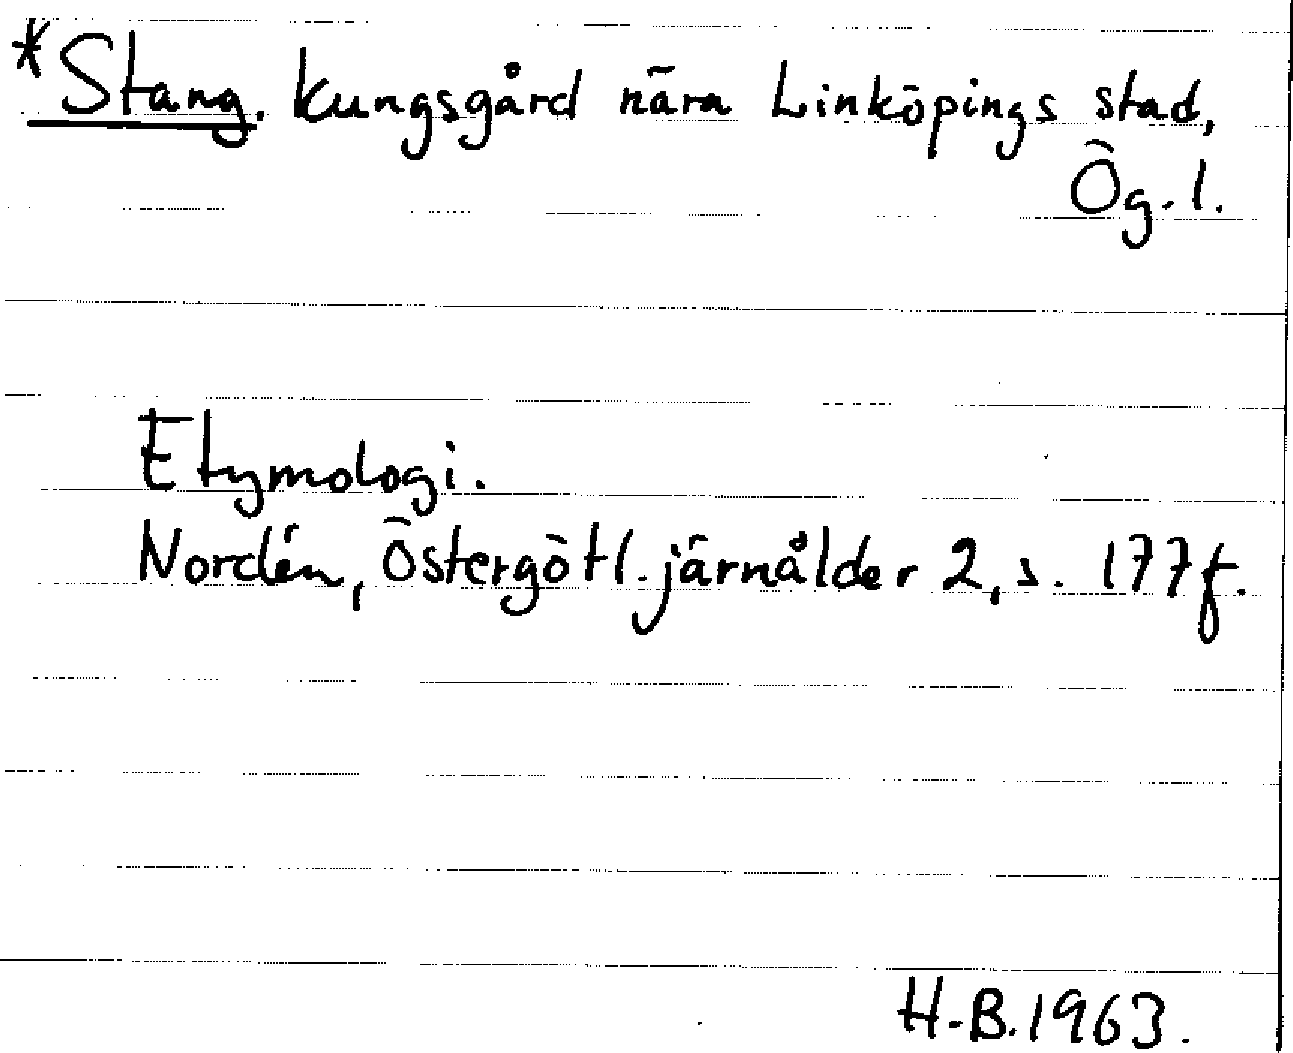 *Stang. kungsgård nära Linköpings stad,
Ög. l.
Etymologi.
Nordén, Östergötl. järnålder 2, s. 177 f.
H.B. 1963.